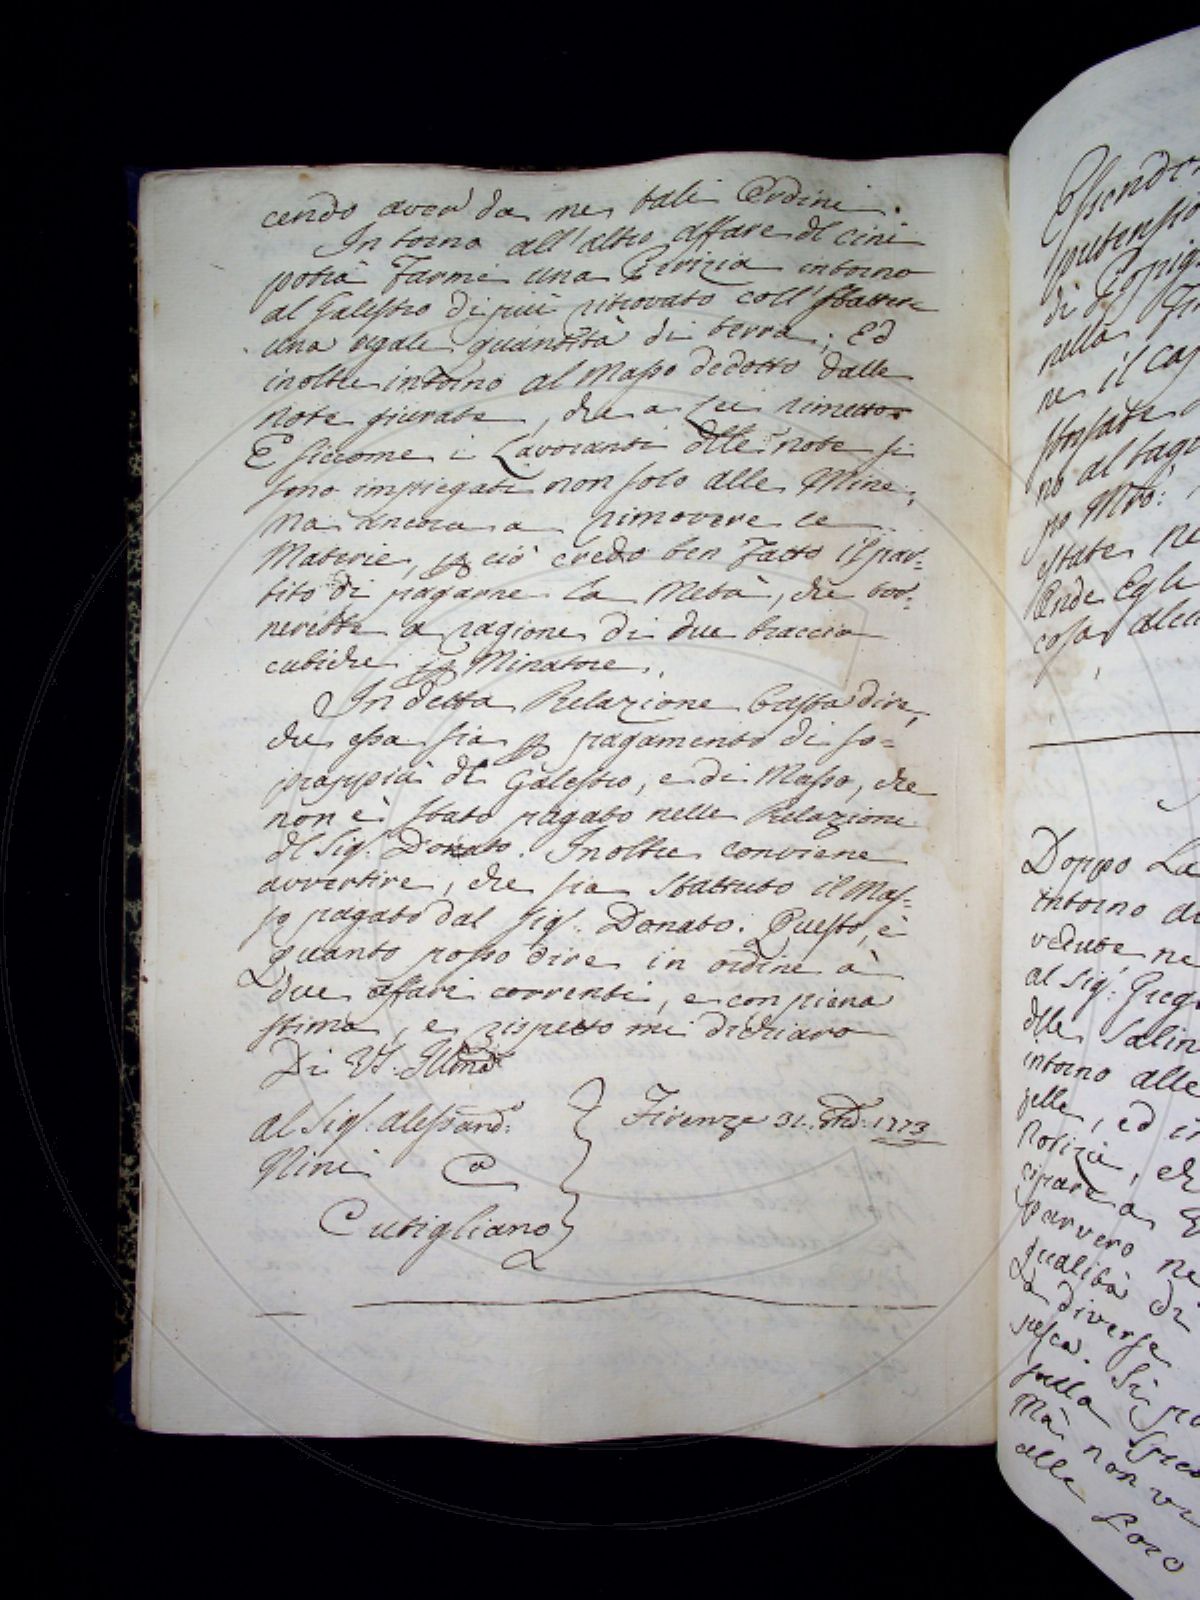 cendo aver da me tali Ordini.
Intorno all'altro affare dl cini
potrà farmi una Perizia intorno
al Galestro di più ritrovato coll'sbattere
una egale quantità di terra; Ed
inoltre intorno al Masso dedotto dalle
note giurate, che a Lei rimetto
E siccome i Lavoranti dlle note si
sono impiegati non solo alle Mine,
ma ancora a rimovere le
Materie, p ciò credo ben fatto il par-
tito di pagarne la Metà, che tor-
nerebbe a ragione di due braccia
cubiche p Minatore.
In detta Relazione basta dire,
che essa sia p pagamento di so-
prappiù dl Galestro, e di Masso, che
non è stato pagato nelle Relazione
dl Sig: Donato. Inoltre conviene
avvertire, che sia sbattuto il Mas-
so pagato dal Sig: Donato. Questo, è
quanto posso dire in ordine à
due affari correnti, e con piena
stima, e rispetto mi dichiaro
Di VS. Illma
al Sig: Alessand:
Nini a
Cutigliano
Firenze 31. 1773
Doppo La
intorno
vedute ne
al Sig:
dlle Salin
intorno alle
zelle, ed in
Notizie, ch
parvero ne
qualità di
da diverse
pesca. Si
sulla
Mà non
alle Loro
nella
ne il cas
no al tagl
po Mro:
estate ne
Onde Egli
cosa alcu